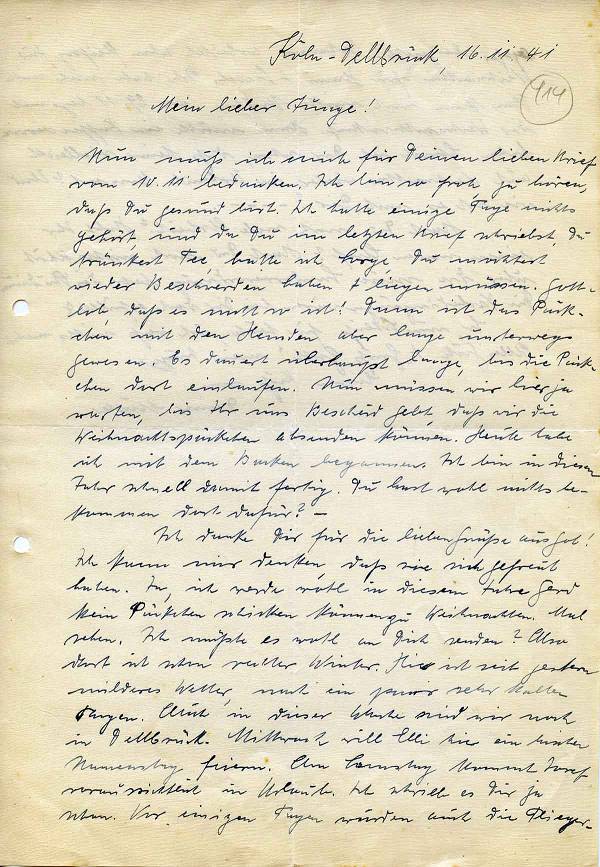 Köln-Dellbrück, 16.11.41
414
Mein lieber Junge!
Nun muß ich mich für Deinen lieben Brief
vom 10.11 bedanken. Ich bin so froh zu hören,
daß Du gesund bist. Ich hatte einige Tage nichts
gehört, und da Du im letzten Brief schriebst, Du
tränkest Tee hatte ich Sorge, Du möchtest
wieder Beschwerden haben + liegen müssen. Gott-
lob, daß es nicht so ist! Dann ist das Päck-
chen mit den Hemden aber lange unterwegs
gewesen. Es dauert überhaupt lange, bis die Päck-
chen dort einlaufen. Nun müssen wir hier ja
warten, bis Ihr uns Bescheid gebt, daß wir die
Weihnachtspäckchen absenden können. Heute habe
ich mit dem Backen begonnen. Ich bin in diesem
Jahr schnell damit fertig. Du hast wohl nichts be-
kommen dort dafür? –
Ich danke Dir für die lieben Grüße an
Ich kann mir denken, daß sie sich gefreut
haben. Ja, ich werde wohl in diesem Jahre Gerd
kein Päckchen schicken können zu Weihnachten. Mal
sehen. Ich müßte es wohl an Dich senden? Also
dort ist schon rechter Winter. Hier ist seit gestern
milderes Wetter, nach ein paar sehr kalten
Tagen. Auch in dieser Woche sind wir noch
in Dellbrück. Mittwoch will Elli hier ein
Namenstag feiern. Am Samstag kommt Josef
voraussichtlich in Urlaub. Ich schrieb es Dir ja
schon. Vor einigen Tagen wurden auch die Flieger-